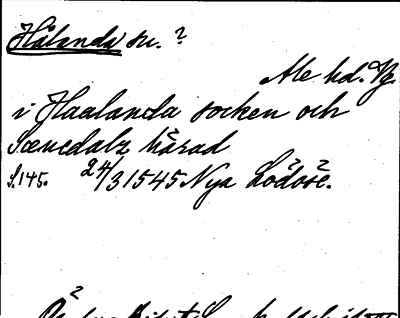 Hålanda sn. ?
Ale hd. Vg.
i Haalanda socken och
Sævedals härad
S. 145. 24/3 1545 Nya Lödöse.